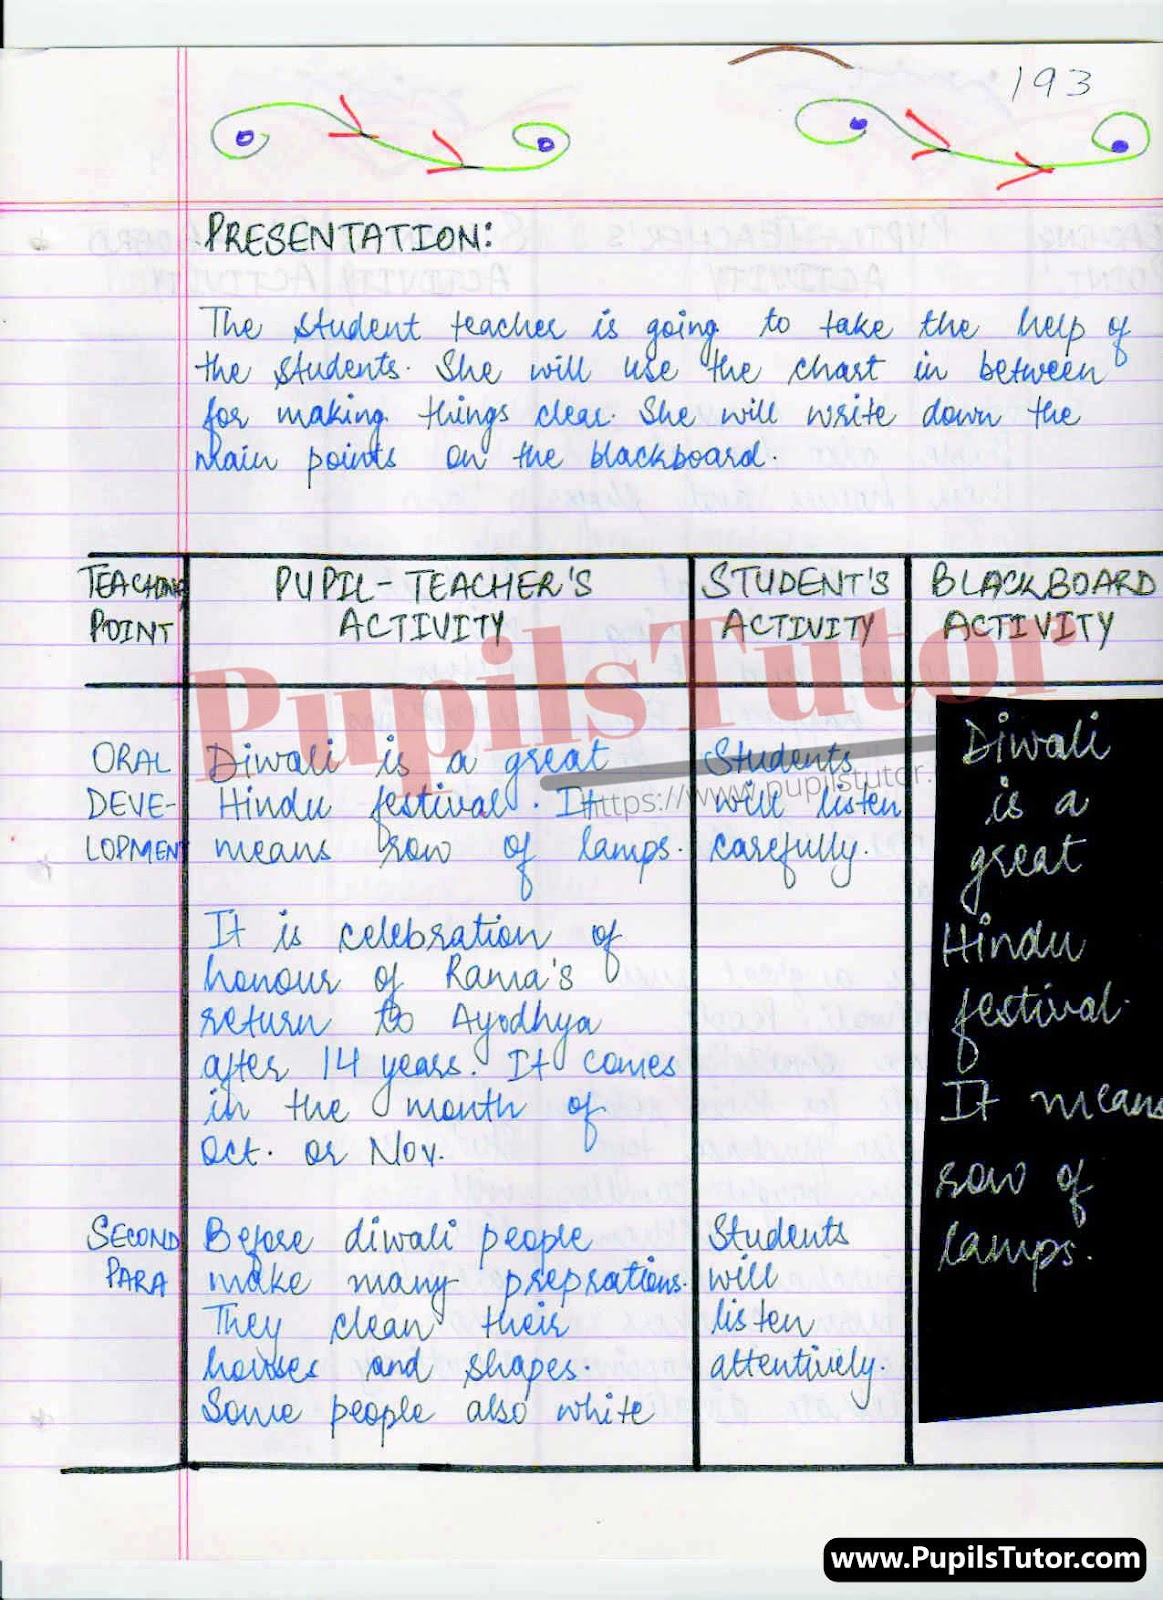 193
PRESENTATION:
The student teacher is going to take the help of
the students. She will use the chart in between
for making things clear. She will write down the
main points on the blackboard.
TEACHING
POINT
PUPIL-TEACHER'S
ACTIVITY
STUDENT'S
ACTIVITY
BLACKBOARD
ACTIVITY
ORAL
DEVE-
LOPMENT
Diwali is a great
Hindu festival. It
means row of lamps.
It is celebration of
honour of Rama's
return to Ayodhya
after 14 years. It comes
in the month of
Oct. or Nov.
Students
will listen
carefully.
Diwali
is a
great
Hindu
festival.
It means
row of
lamps.
SECOND
PARA
Before diwali people
make many preprations.
They clean their
houses and shapes.
Some people also white
Students
will
listen
attentively.
PupilsTutor
https://www.pupilstutor.
www.PupilsTutor.com